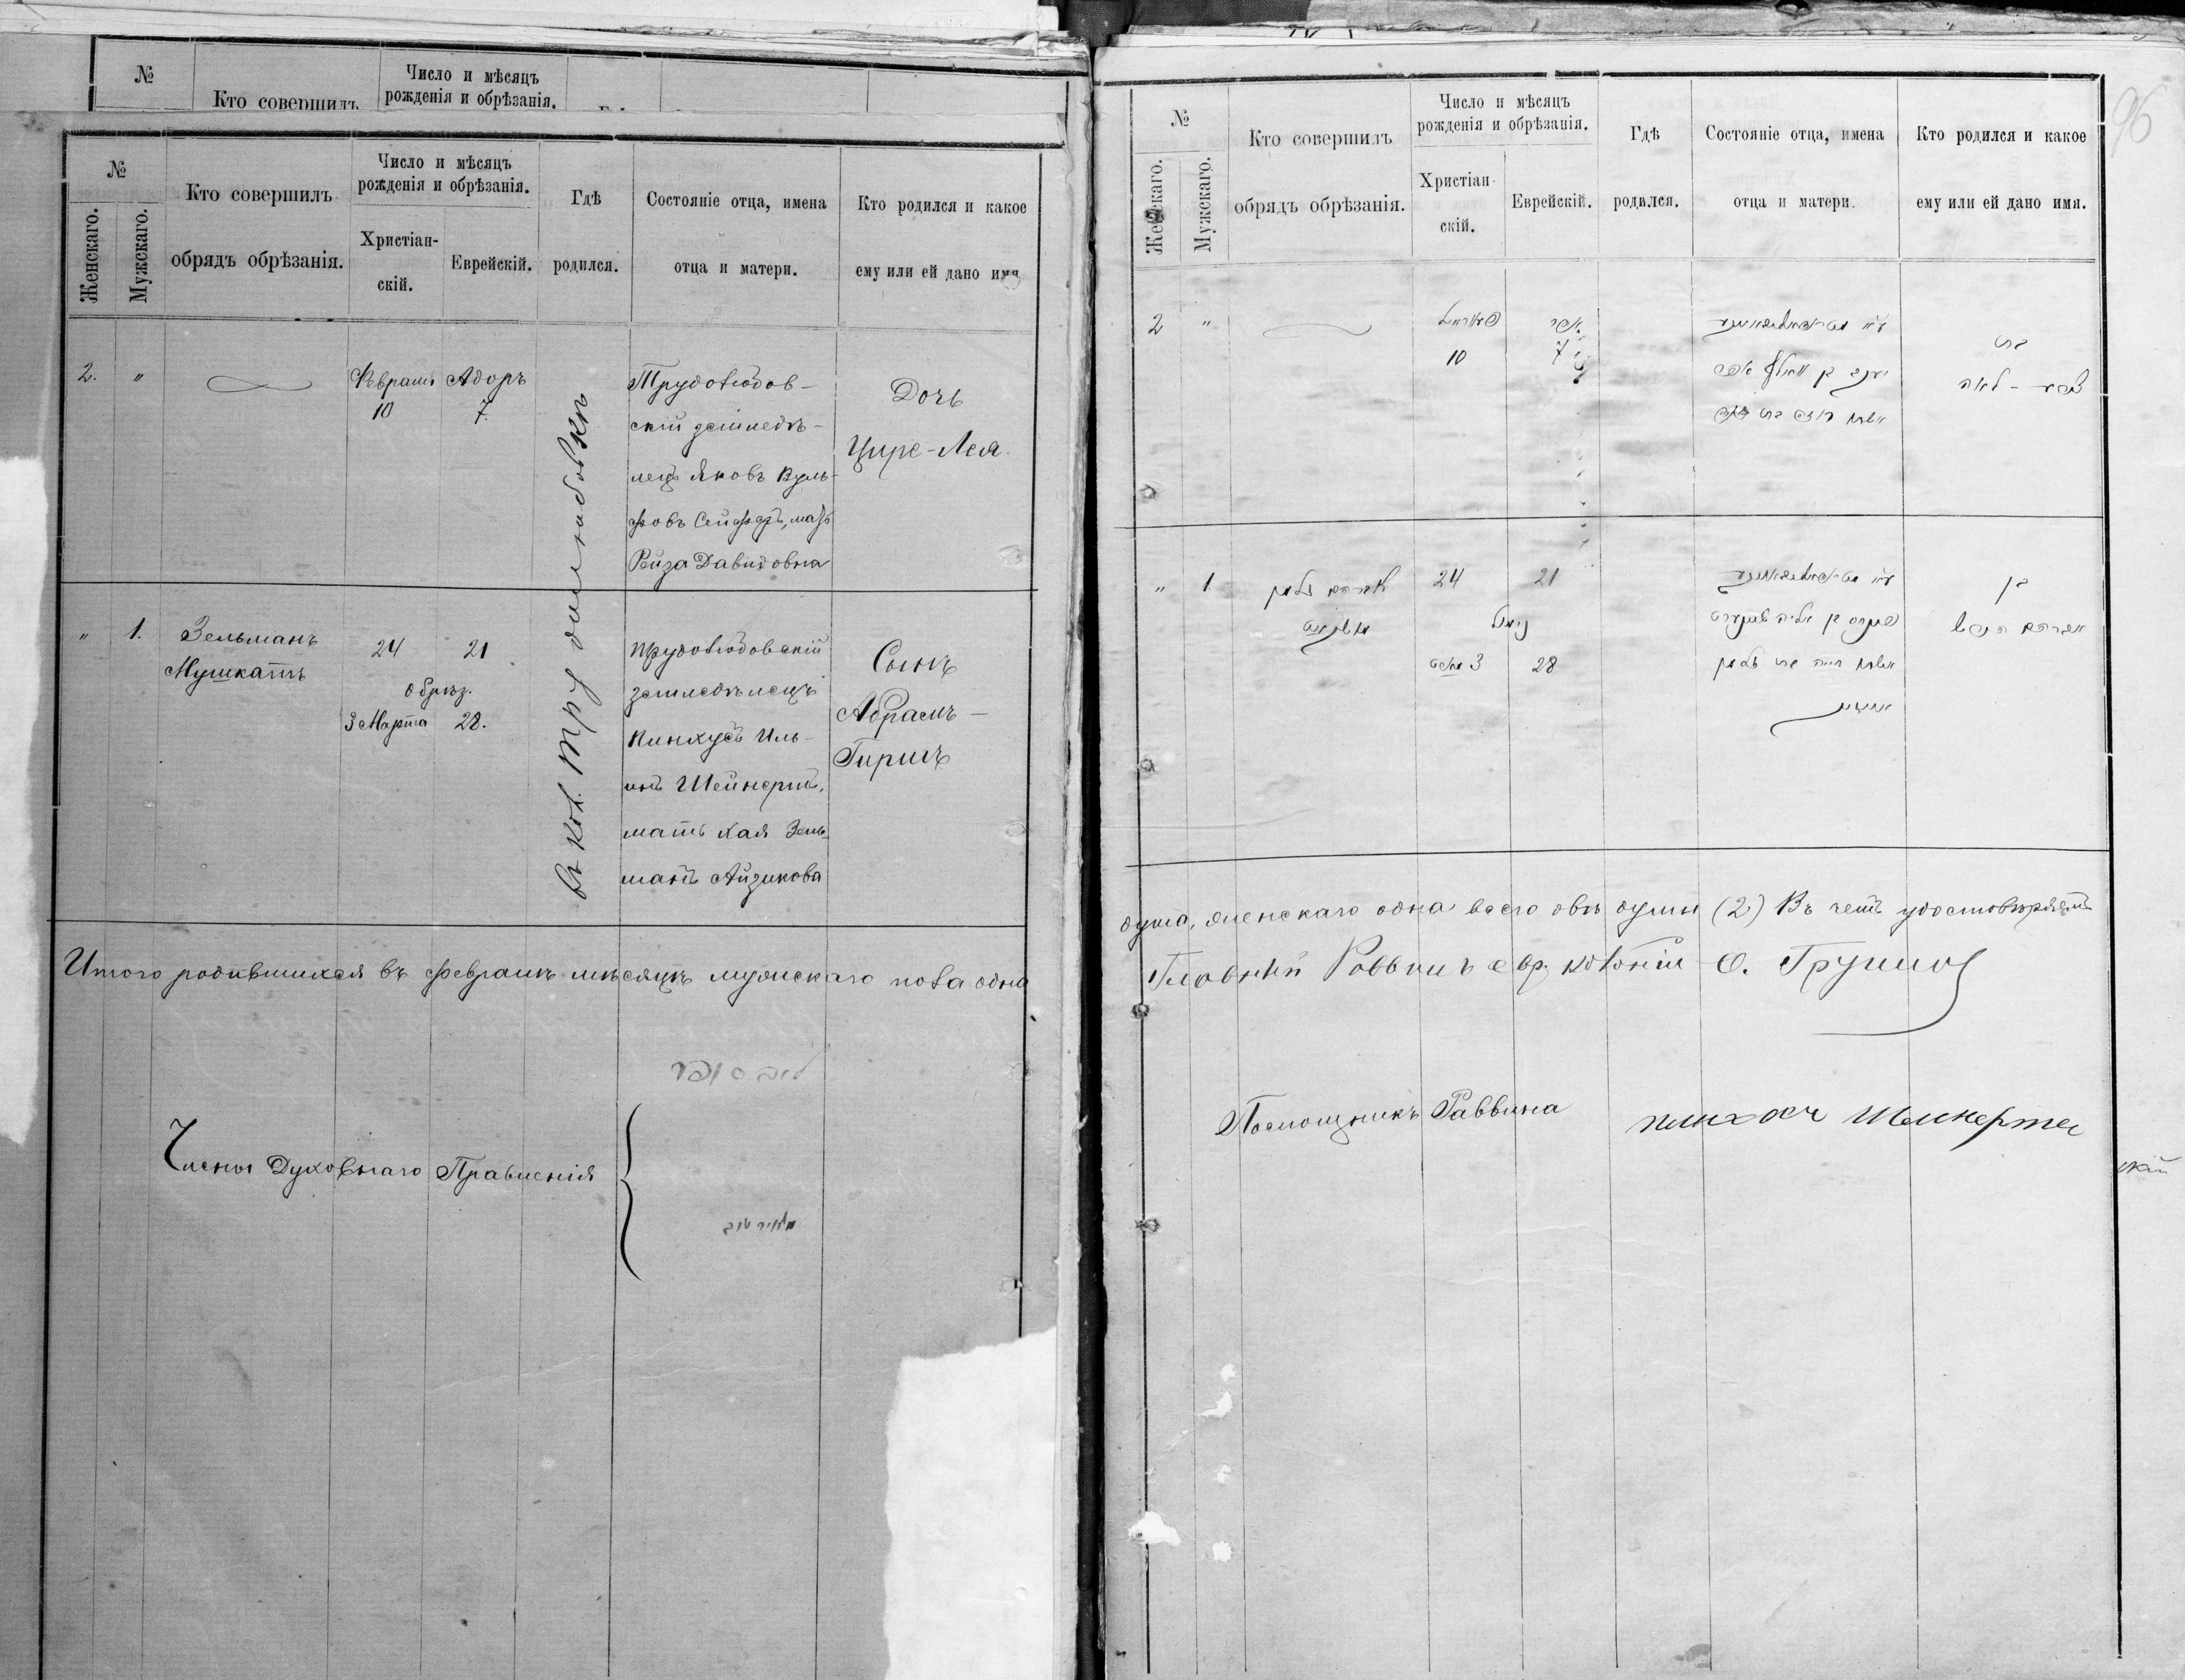 №
Кто совершилъ
Число и мѣсяцъ
рожденія и обрѣзанія.
№
Женскаго.
Мужскаго.
Кто совершилъ
обрядъ обрѣзанія.
Число и мѣсяцъ
рожденія и обрѣзанія.
Христіан-
скій.
Еврейскій.
Гдѣ
родился.
Состояніе отца, имена
отца и матери.
Кто родился и какое
ему или ей дано имя
2.
"
Февраля
10
Адоръ
7.
въ кол. Трудолюбовкѣ
Трудолюбов-
скій земледѣ-
лецъ Яковъ Вуль-
фовъ Сейферъ, мать
Рейза Давидовна
Дочь
Цире-Лея.
"
1.
Зельманъ
Мушкатъ
24
21
обрѣз.
3 Марта
28.
Трудолюбовскій
земледѣлецъ
Пинхусъ Иль-
инъ Шейнертъ,
мать Хая Зель-
манъ Айзикова
Сынъ
Абрамъ-
Гиршъ
Итого родившихся въ февралѣ мѣсяцѣ мужскаго пола одна
Члены Духовнаго Правленія
96
№
Женскаго.
Мужскаго.
Кто совершилъ
обрядъ обрѣзанія.
Число и мѣсяцъ
рожденія и обрѣзанія.
Христіан-
скій.
Еврейскій.
Гдѣ
родился.
Состояніе отца, имена
отца и матери.
Кто родился и какое
ему или ей дано имя.
2
"
10
אדר
7
בת
צירע - לאה
"
1
זלמן
מושקאט
24
21
נימול
3
28
בן
אברהם הירש
душа, женскаго одна всего двѣ души (2) Въ чемъ удостовѣряемъ
Главный Раввинъ евр. колоній
Помощникъ Раввина
Пинхос Шейнерте
скій